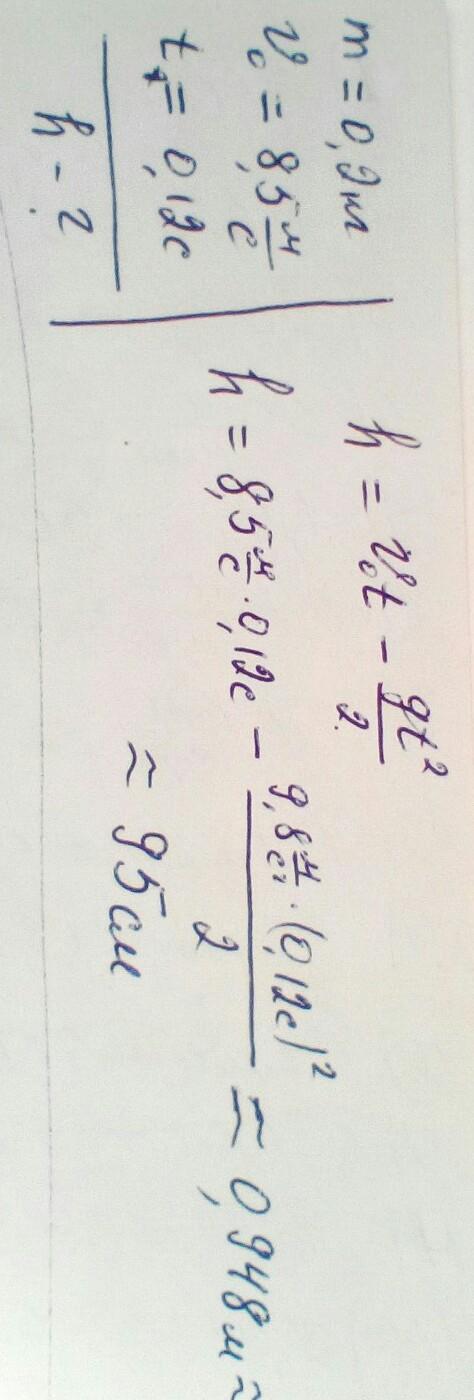 m = 0,2м
v₀ = 8,5 м/с
t = 0,12с
h - ?
h = v₀t - gt²/2
h = 8,5 м/с · 0,12с - 9,8 м/с² · (0,12с)²/2 ≈ 0,948м ≈
≈ 95см